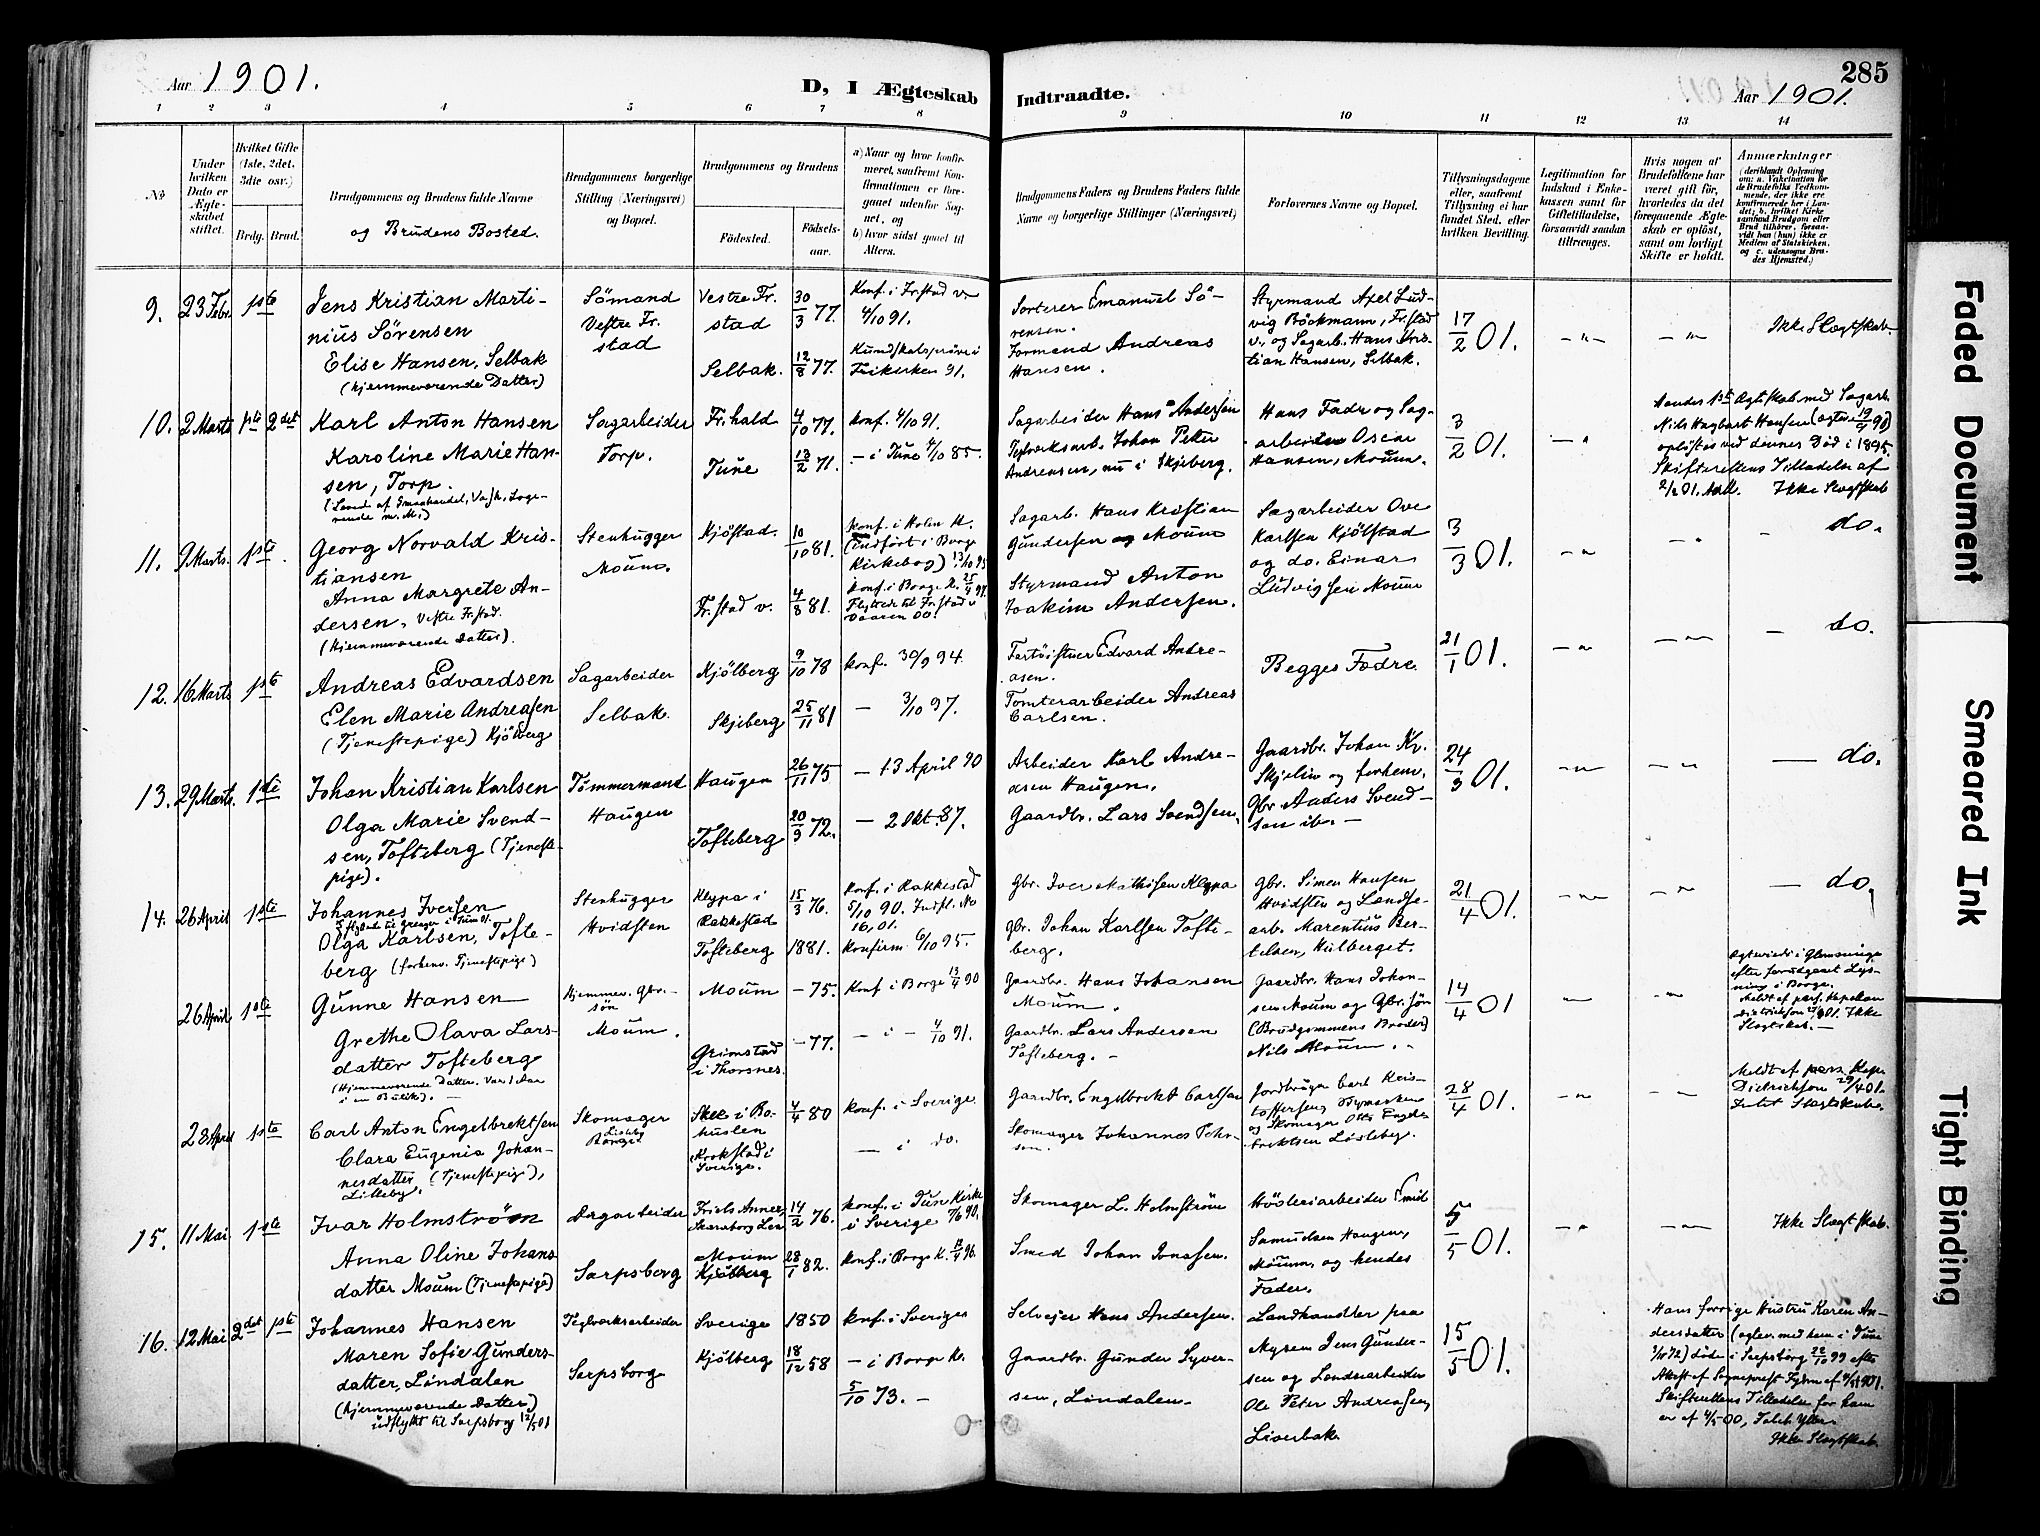 Aar 1901.
D, I Ægteskab
Indtraadte.
285
Aar 1901.
1 2 3 4 5 6 7 8 9 10 11 12 13 14
No.
Under hvilken Dato er Ægteskabet stiftet.
Hvilket Gifte (1ste, 2det, 3die osv.)
Brdg. Brud.
Brudgommens og Brudens fulde Navne
og Brudens Bosted.
Brudgommens borgerlige Stilling (Næringsvei) og Bopæl.
Brudgommens og Brudens
Fødested.
Fødselsaar.
a) Naar og hvor konfirmeret, saafremt Konfirmationen er foregaaet udenfor Sognet, og
b) hvor sidst gaaet til Alters.
Brudgommens Faders og Brudens Faders fulde Navne og borgerlige Stillinger (Næringsvei)
Forlovernes Navne og Bopæl.
Tillysningsdagene eller, saafremt Tillysning ei har fundet Sted, efter hvilken Bevilling.
Legitimation for Indskud i Enkekassen samt for Giftetilladelse, forsaavidt saadan tiltrænges.
Hvis nogen af Brudefolkene har været gift før, hvorledes da det foregaaende Ægteskab er opløst, samt om lovligt Skifte er holdt.
Anmærkninger
(deriblandt Oplysning om: a. Vakcination for de Brudefolks Vedkommende, der ikke ere konfirmerede her i Landet; b. hvilket Kirkesamfund Brudgom eller Brud tilhører, forsaavidt han (hun) ikke er Medlem af Statskirken, og c. udensogns Brudes Hjemsted.)
9. 23 Febr. 1ste
Jens Kristian Martinius Sørensen
Elise Hansen, Selbak
(hjemmeværende Datter)
Sömand
Vestre Fr.stad
Vestre Fr.stad 30/3 77.
Selbak. 12/8 77.
Konf. i Fr.stad v. 4/10 91.
Kundskabsprøve i Frikirken 91.
Sorterer Emanuel Sörensen.
Formand Andreas Hansen.
Styrmand Axel Ludvig Böckmann, Fr.stad v., og Sagarb. Hans Kristian Hansen, Selbak.
17/2 01.
Ikke Slægtskab.
10. 2 Marts 1ste 2det
Karl Anton Hansen
Karoline Marie Hansen, Torp.
Sagarbeider
Torp.
Fr.hald 4/10 77.
Tune 13/2 71.
Konf. 4/10 91.
- i Tune 4/10 85.
Sagarbeider Hans Andersen
Teglværksarb. Johan Peter Andreasen, nu i Skjeberg.
Hans Fadr og Sagarbeider Oscar Hansen, Moum.
3/2 01.
Hendes 1ste Ægteskab med Sagarb. Nils Hagbart Hansen
opløstes ved dennes Död i 1895.
Skifterettens Tilladelse af 2/2 01.
Ikke Slægtskab
11. 9 Marts. 1ste.
Georg Norvald Kristiansen
Anna Margrete Andersen, Vestre Fr.stad.
(Hjemmeværende Datter).
Stenhugger
Moum.
Kjölstad. 10/10 81.
Fr.stad v. 4/8 81.
Konf. i Holm K.
(indført i Borge Kirkebog)
Konf. i Borge K.
Flyttede til Fr.stad v. Vaaren 00.
Sagarb. Hans Kristian Gundersen Moum
Styrmand Anton Joakim Andersen.
Sagarbeider Ove Karlsen Kjölstad og do. Einar Ludvigsen Moum
3/3 01.
- do.
12. 16 Marts 1ste
Andreas Edvardsen
Elen Marie Andreasen
(Tjenestepige) Kjölberg
Sagarbeider
Selbak.
Kjölberg 9/10 78
Skjeberg 25/11 81
Konf. 30/9 94.
- 3/10 97.
Edvard Andreasen.
Tomterarbeider Andreas Carlsen.
Begges Fædre
21/1 01.
- do.
13. 29 Marts. 1ste
Johan Kristian Karlsen
Olga Marie Svendsen, Tofteberg (Tjenestepige).
Tömmermand
Haugen
Haugen 26/11 75
Tofteberg 20/9 72.
- 13 April 90
- 2 Okt. 87.
Arbeider Karl Andreasen Haugen.
Gaardbr. Lars Svendsen,
Gaardbr. Johan Kr. Skjelin og forhenv. Gbr. Anders Svendsen ib. -
24/3 01.
- do.
14. 26 April 1ste
Johannes Iversen
Olga Karlsen, Tofteberg (forhenv. Tjenestepige)
Stenhugger
Hvidsten
Kleppa i Rakkestad 15/3 76.
Tofteberg 1881.
Konf. i Rakkestad 5/10 90. Indfl. No 16, 01.
Konfirm. 6/10 95.
Gbr. Iver Mathisen Kleppa
Gbr. Johan Karlsen Tofteberg.
Gbr. Simen Hansen Hvidsten og Landsearb. Marentius Bertelsen, Hulberget.
21/4 01.
- do.
26 April 1ste
Gunne Hansen
Grethe Olava Larsdatter Tofteberg
(Hjemmeværende Datter. Var 1 Aar i en Butik). -
Hjemmev. Gbr.sön
Moum.
Moum - 75.
Grimstad i Thorsnes. - 77.
Konf i Borge 13/4 90
- i - 4/10 91.
Gaardbr. Hans Johansen Moum.
Gaardbr. Lars Andersen Tofteberg. -
Gaardbr. Hans Johansen Moum og Gbr. sön (Brudgommens Broder) Nils Moum. -
14/4 01
Ægteviede i Glemminge efter forudgaaet Lysning i Borge.
Meldt af pers. Kapellan Dietrichson 27/4 01. Ikke Slægtskab. -
28 April 1ste
Carl Anton Engelbrektsen
Clara Eugenia Johannesdatter (Tjenestepige), Lilleby.
Skomager
Lisleby
Skee i Bohuslen 4/4 80
Krokstad i Sverige.
Konf. i Sverige.
- i do.
Gaardbr. Engelbrekt Carlsen
Skomager Johannes
Jordbruger Carl Kristoffersen,
og Skomager Otto Engelbrektsen Lisleby.
28/4 01.
Meldt af pers. Kap. Dietrichson 29/4 01.
Intet Slægtskab.
15. 11 Mai 1ste
Ivar Holmström
Anna Oline Johansdatter Moum (Tjenestepige)
Dagarbeider
Sarpsborg
Skaraborg Len 14/2 76.
Moum Kjölberg 28/1 82.
Konf. i Tun Kirke i Sverige 7/6 90.
Konf. i Borge K.
Skomager L. Holmström
Smed Johan Jonassen.
Hövleriarbeider Emil Samuelsen Haugen, Moum, og hendes Fader.
5/5 01.
Ikke Slægtskab.
16. 12 Mai 2det 1ste
Johannes Hansen
Maren Sofie Gundersdatter, Lindalen
(hjemmeværende Datter)
udflyttet til Sarpsborg 12/5 01
Teglværksarbeider
Sarpsborg
Sverige 1850
Kjölberg 18/12 58
Konf. i Sverige
- i Borge K. 5/10 73. -
Selveier Hans Andersen.
Gaardbr. Gunder Syversen, Lindalen.
Landhandler paa Mysen Jens Gundersen og Landsearbeider Ole Peter Andreasen, Liverbak.
15/5 01.
Hans forrige Hustru Karen Andersdatter
döde i Sarpsborg 22/10 99 efter Attest af Sogneprest
Skifterettens Tilladelse for ham er af 4/5 00,
Ikke Slægtskab.
Faded Document
Smeared Ink
Tight Binding